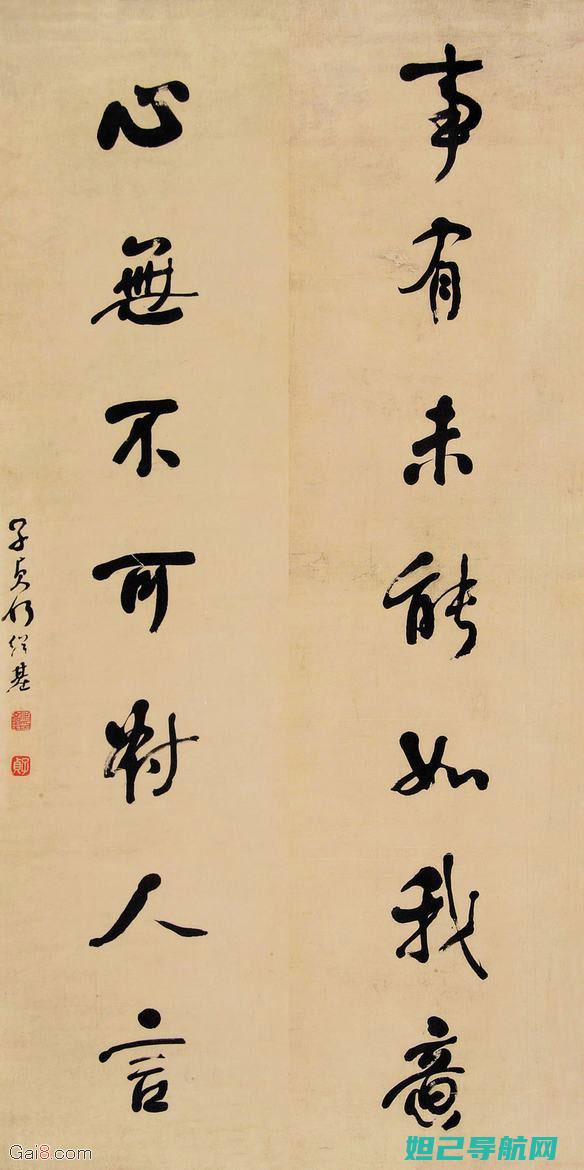 事有未能如我意
心無不可對人言
子貞何紹基
子貞
Gai8.com
妲己导航网